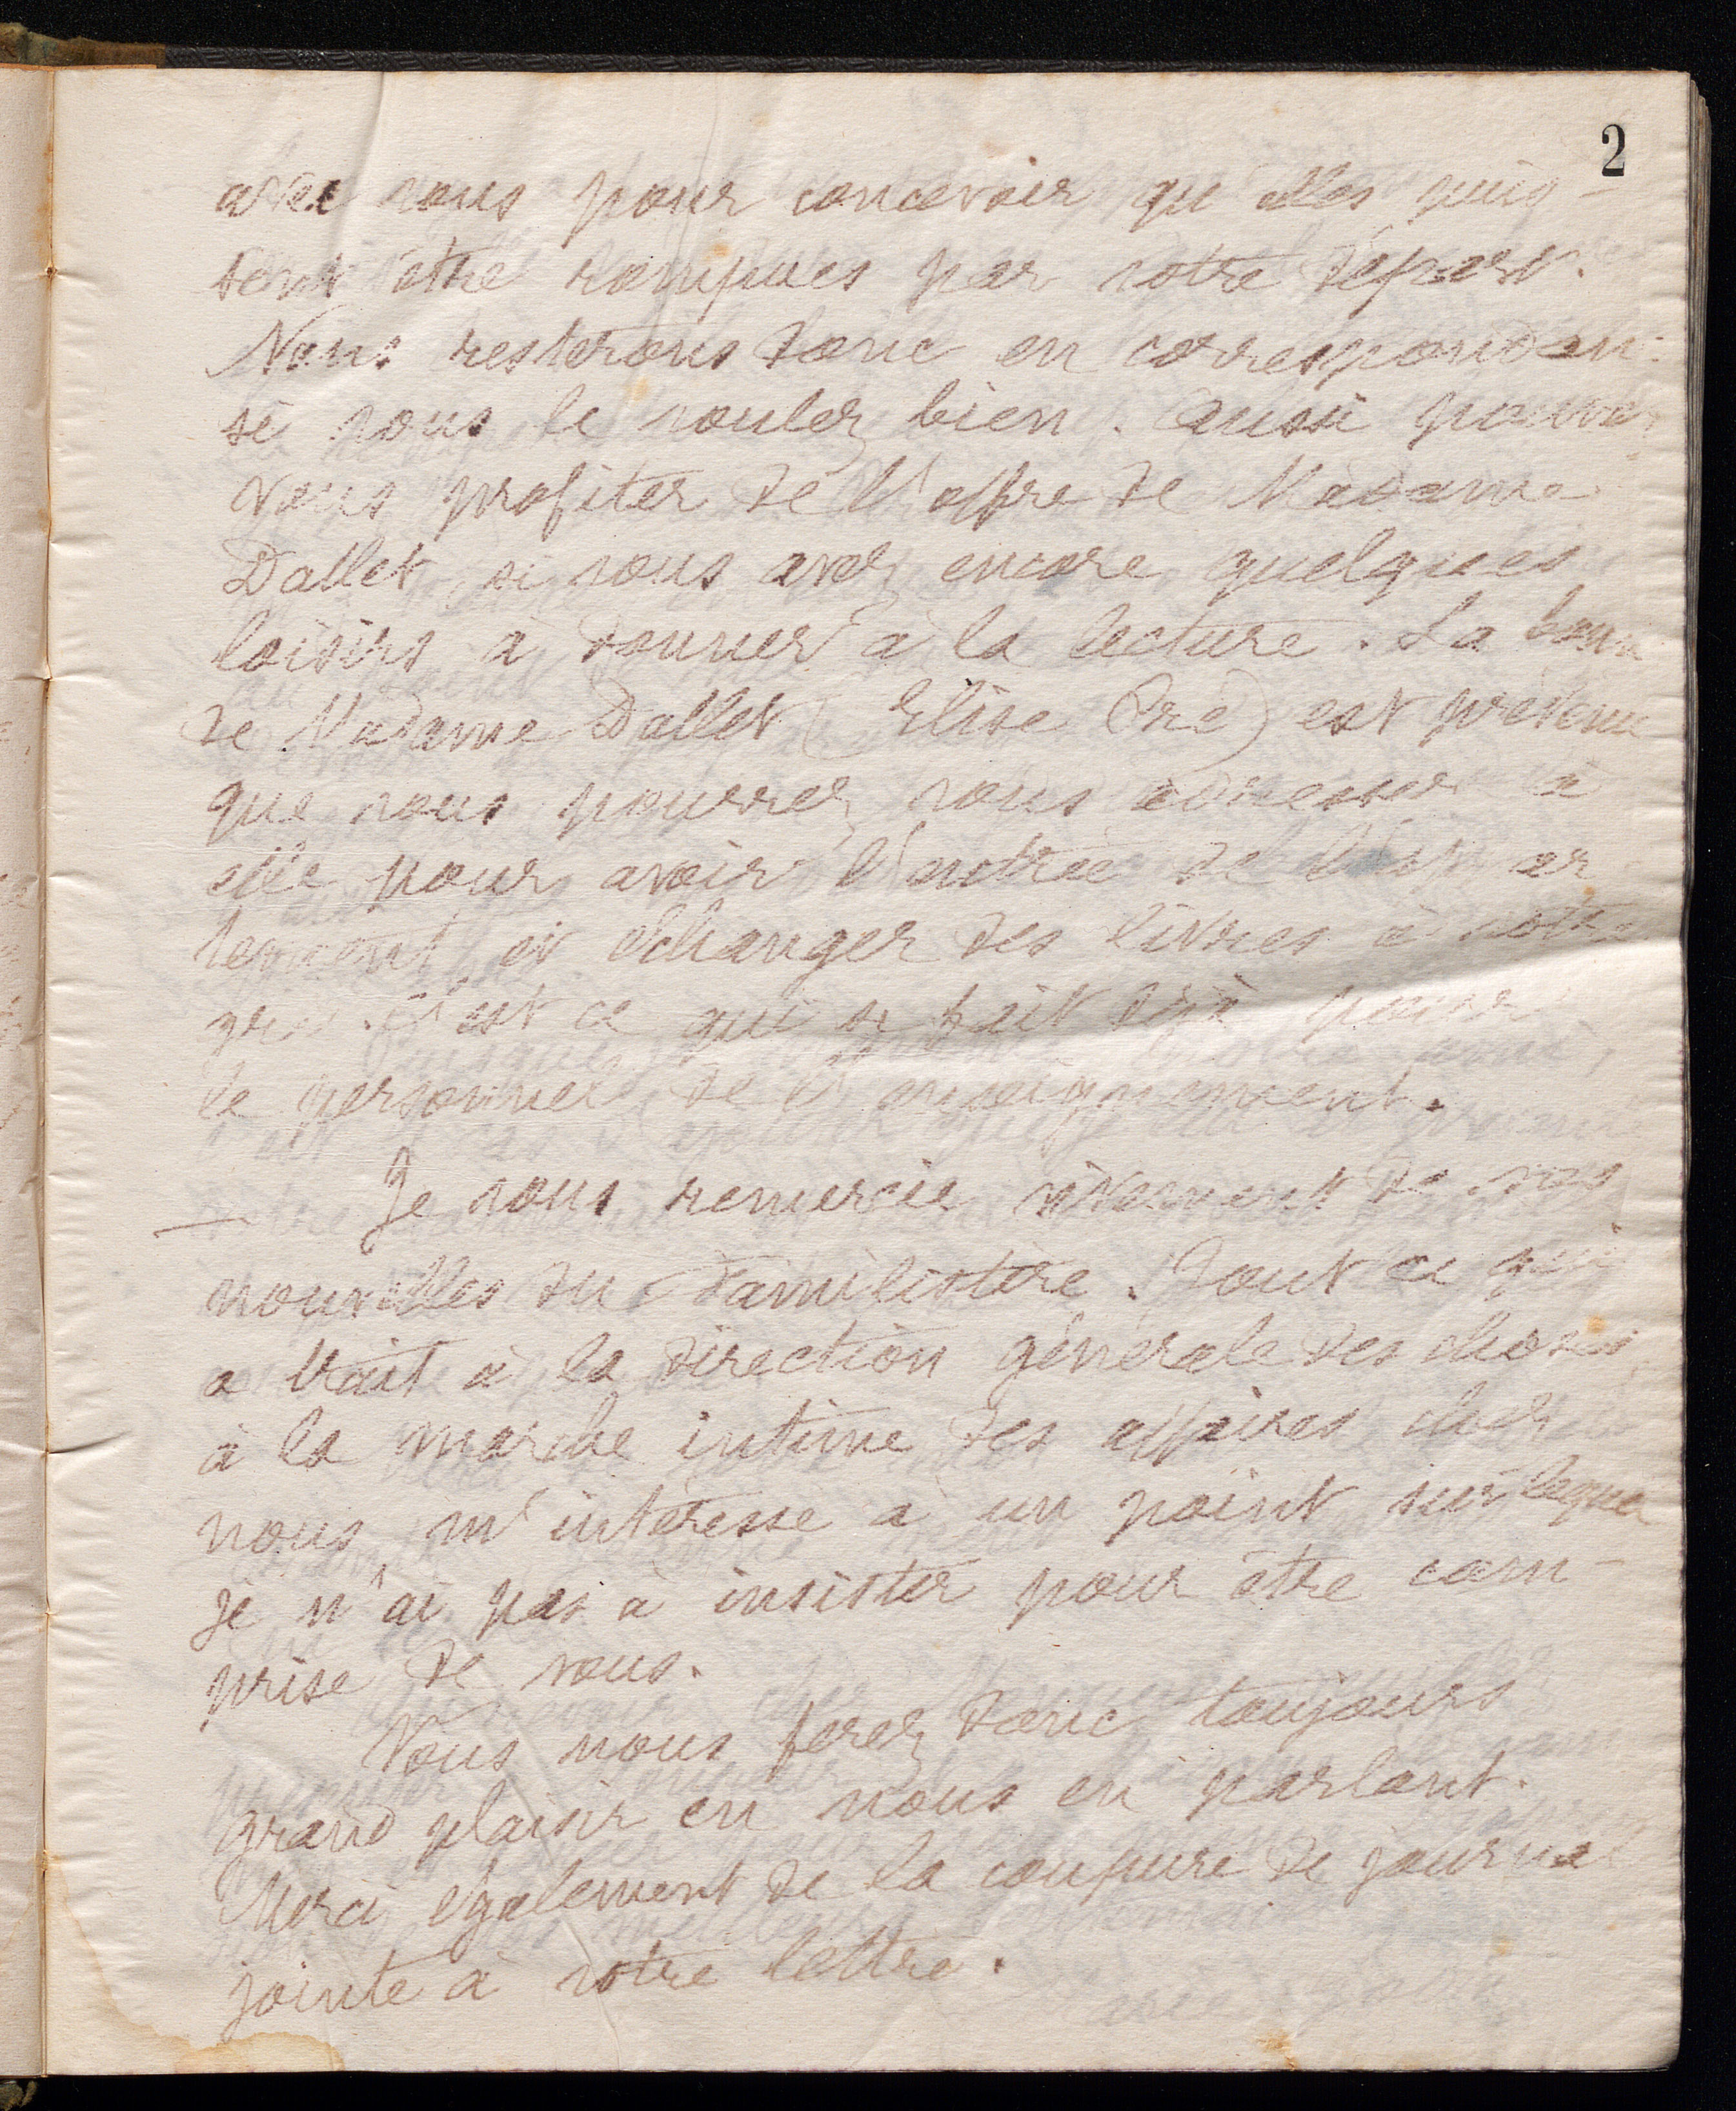 2
avec vous pour concevoir qu'elles puis-
sent être rompues par votre départ.
Nous resterons donc en correspondan-
si vous le voulez bien. Aussi pouvez
vous profiter de l'offre de Madame
Dallet, si vous avez encore quelques
loisirs à donner à la lecture. La bonne
de Madame Dallet (Elise Pré) est prévenue
que vous pourrez vous adresser à
elle pour avoir l'entrée de l'appar
tement et échanger des livres à votre
gré. C'est ce qui se fait déjà pour
le personnel de l'enseignement.
— Je vous remercie vivement de vos
nouvelles du Familistère. Tout ce qui
a trait à la direction générale des choses
à la marche intime des affaires chez
nous, m'intéresse à un point sur lequel
je n'ai pas à insister pour être com-
prise de vous.
Vous nous ferez donc toujours
grand plaisir en nous en parlant.
Merci également de la coupure de journal
jointe à votre lettre.